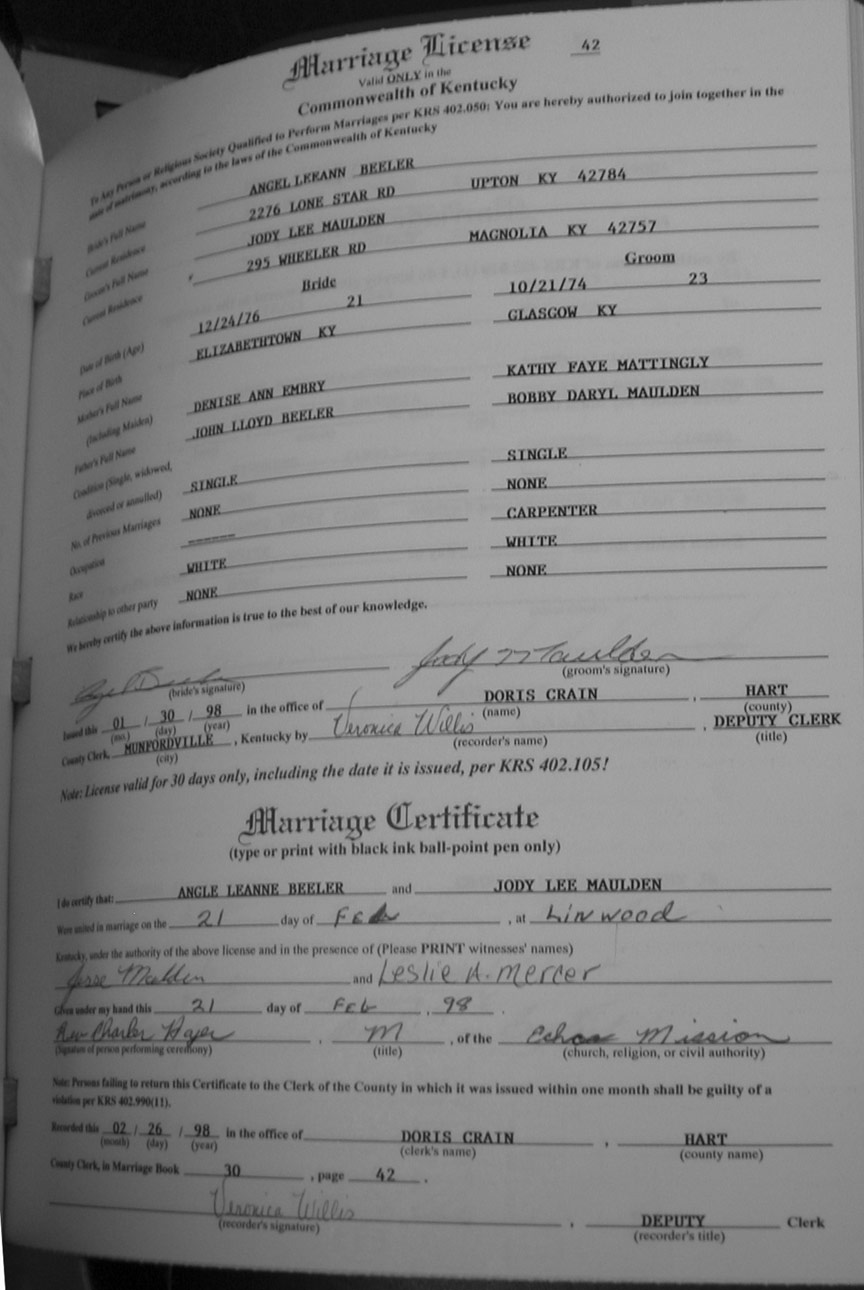 Marriage License 42
Valid ONLY in the
Commonwealth of Kentucky
To Any Person or Religious Society Qualified to Perform Marriages per KRS 402.050: You are hereby authorized to join together in the
state of matrimony, according to the laws of the Commonwealth of Kentucky
Bride's Full Name ANGEL LEEANN BEELER
Current Residence 2276 LONE STAR RD UPTON KY 42784
Groom's Full Name JODY LEE MAULDEN
Current Residence 295 WHEELER RD MAGNOLIA KY 42757
Bride Groom
Date of Birth (Age) 12/24/76 21 10/21/74 23
Place of Birth ELIZABETHTOWN KY GLASGOW KY
Mother's Full Name
(including Maiden) DENISE ANN EMBRY KATHY FAYE MATTINGLY
Father's Full Name JOHN LLOYD BEELER BOBBY DARYL MAULDEN
Condition (Single, widowed,
divorced or annulled) SINGLE SINGLE
No. of Previous Marriages NONE NONE
Occupation ------ CARPENTER
Race WHITE WHITE
Relationship to other party NONE NONE
We hereby certify the above information is true to the best of our knowledge.
Jody Maulden
(bride's signature) (groom's signature)
Issued this 01 / 30 / 98 in the office of DORIS CRAIN , HART
(mo.) (day) (year) (name) (county)
County Clerk, MUNFORDVILLE , Kentucky by Veronica Willis , DEPUTY CLERK
(city) (recorder's name) (title)
Note: License valid for 30 days only, including the date it is issued, per KRS 402.105!
Marriage Certificate
(type or print with black ink ball-point pen only)
I do certify that: ANGLE LEANNE BEELER and JODY LEE MAULDEN
Were united in marriage on the 21 day of Feb , at Linwood
Kentucky, under the authority of the above license and in the presence of (Please PRINT witnesses' names)
Jesse Maulden and Leslie A. Mercer
Given under my hand this 21 day of Feb , 98 .
Rev Charles , M , of the Mission
(Signature of person performing ceremony) (title) (church, religion, or civil authority)
Note: Persons failing to return this Certificate to the Clerk of the County in which it was issued within one month shall be guilty of a
violation per KRS 402.990(11).
Recorded this 02 / 26 / 98 in the office of DORIS CRAIN , HART
(month) (day) (year) (clerk's name) (county name)
County Clerk, in Marriage Book 30 , page 42 .
Veronica Willis , DEPUTY Clerk
(recorder's signature) (recorder's title)